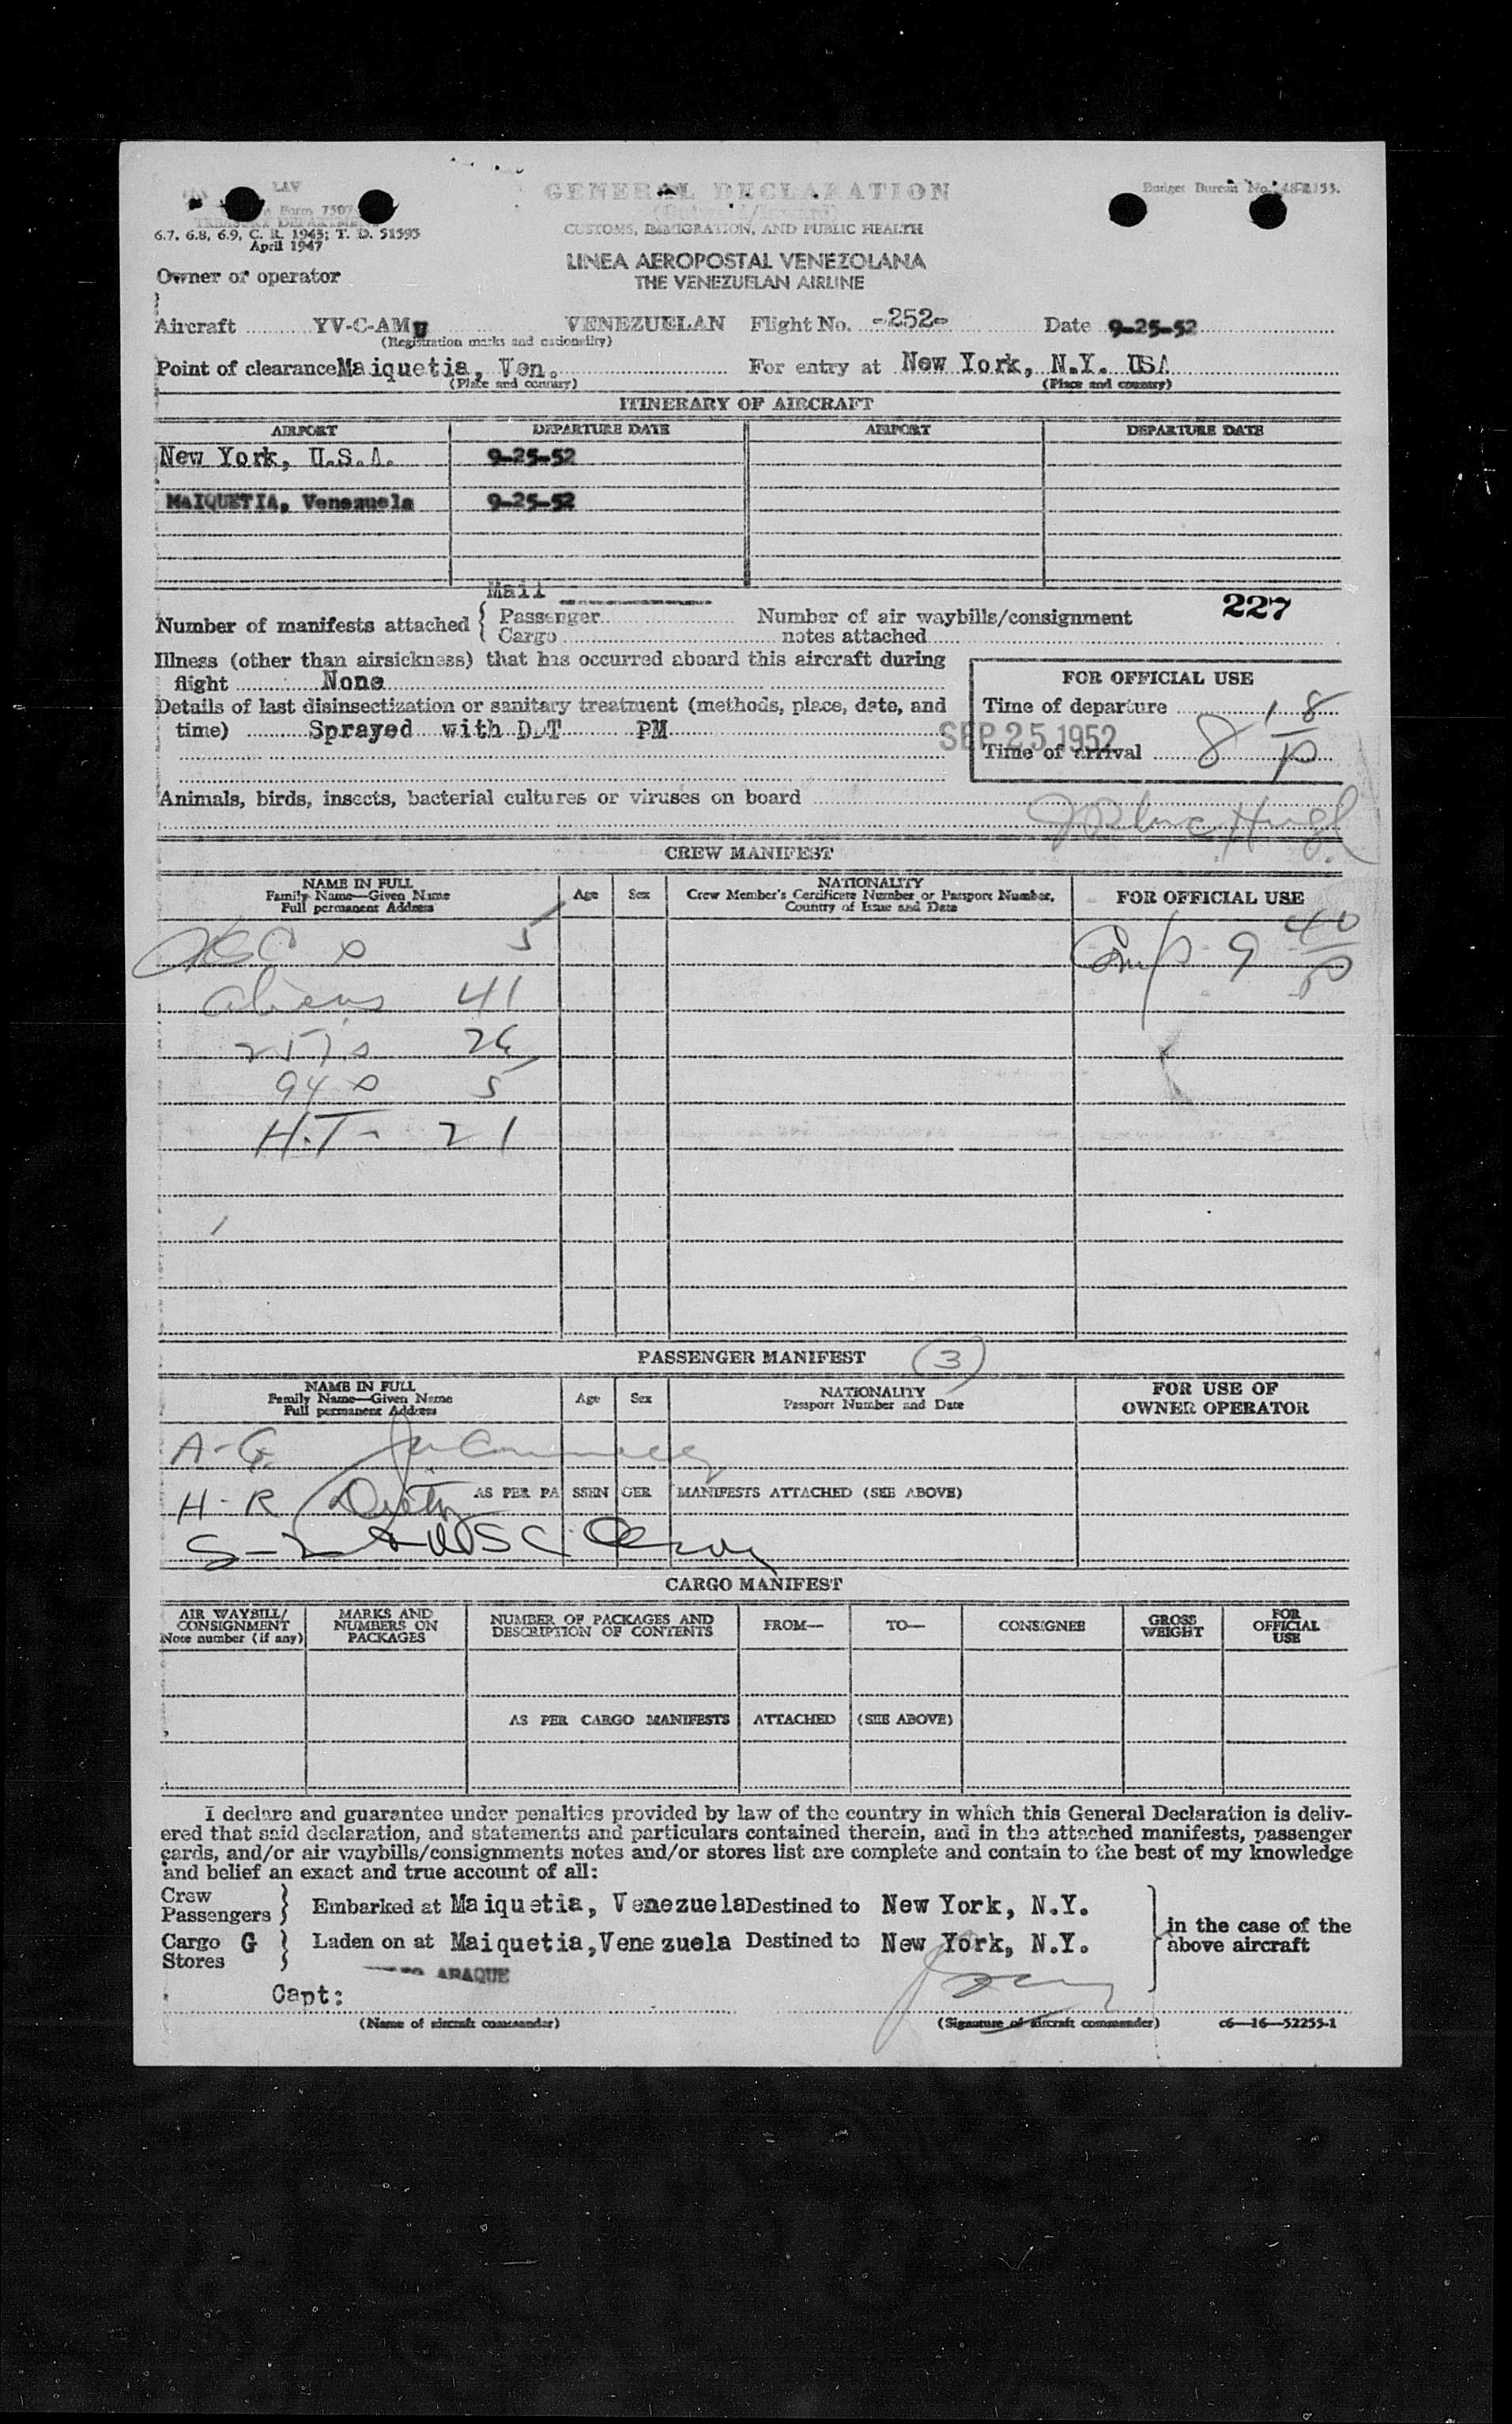 LAV
Form 7507
TREASURY DEPARTMENT
6.7, 6.8, 6.9, C. R. 1943; T. D. 51593
April 1947
GENERAL DECLARATION
(Outward/Inward)
CUSTOMS, IMMIGRATION, AND PUBLIC HEALTH
Budget Bureau No.
LINEA AEROPOSTAL VENEZOLANA
THE VENEZUELAN AIRLINE
Owner or operator
Aircraft YV-C-AMU VENEZUELAN Flight No. -252- Date 9-25-52
(Registration marks and nationality)
Point of clearance Maiquetia, Ven. For entry at New York, N.Y. USA
(Place and country) (Place and country)
ITINERARY OF AIRCRAFT
AIRPORT DEPARTURE DATE AIRPORT DEPARTURE DATE
New York, U.S.A. 9-25-52
MAIQUETIA, Venezuela 9-25-52
Mail
Number of manifests attached { Passenger Number of air waybills/consignment 227
Cargo notes attached
Illness (other than airsickness) that has occurred aboard this aircraft during
flight None
Details of last disinsectization or sanitary treatment (methods, place, date, and
time) Sprayed with DDT PM
FOR OFFICIAL USE
Time of departure
SEP 25 1952
Time of arrival 8 18/P
Animals, birds, insects, bacterial cultures or viruses on board
CREW MANIFEST
NAME IN FULL
Family Name—Given Name
Full permanent Address
Age
Sex
NATIONALITY
Crew Member's Certificate Number or Passport Number,
Country of Issue and Date
FOR OFFICIAL USE
USC s 5
9 40/P
aliens 41
257s 26
94 s 5
H.T- 21
PASSENGER MANIFEST (3)
NAME IN FULL
Family Name—Given Name
Full permanent Address
Age
Sex
NATIONALITY
Passport Number and Date
FOR USE OF
OWNER OPERATOR
A-G
H-R AS PER PASSENGER MANIFESTS ATTACHED (SEE ABOVE)
S-Z & USC
CARGO MANIFEST
AIR WAYBILL/
CONSIGNMENT
Note number (if any)
MARKS AND
NUMBERS ON
PACKAGES
NUMBER OF PACKAGES AND
DESCRIPTION OF CONTENTS
FROM—
TO—
CONSIGNEE
GROSS
WEIGHT
FOR
OFFICIAL
USE
AS PER CARGO MANIFESTS ATTACHED (SEE ABOVE)
I declare and guarantee under penalties provided by law of the country in which this General Declaration is deliv-
ered that said declaration, and statements and particulars contained therein, and in the attached manifests, passenger
cards, and/or air waybills/consignments notes and/or stores list are complete and contain to the best of my knowledge
and belief an exact and true account of all:
Crew
Passengers } Embarked at Maiquetia, Venezuela Destined to New York, N.Y.
in the case of the
above aircraft
Cargo G } Laden on at Maiquetia, Venezuela Destined to New York, N.Y.
Stores
ARAQUE
Capt:
(Name of aircraft commander) (Signature of aircraft commander) c6—16—52255-1